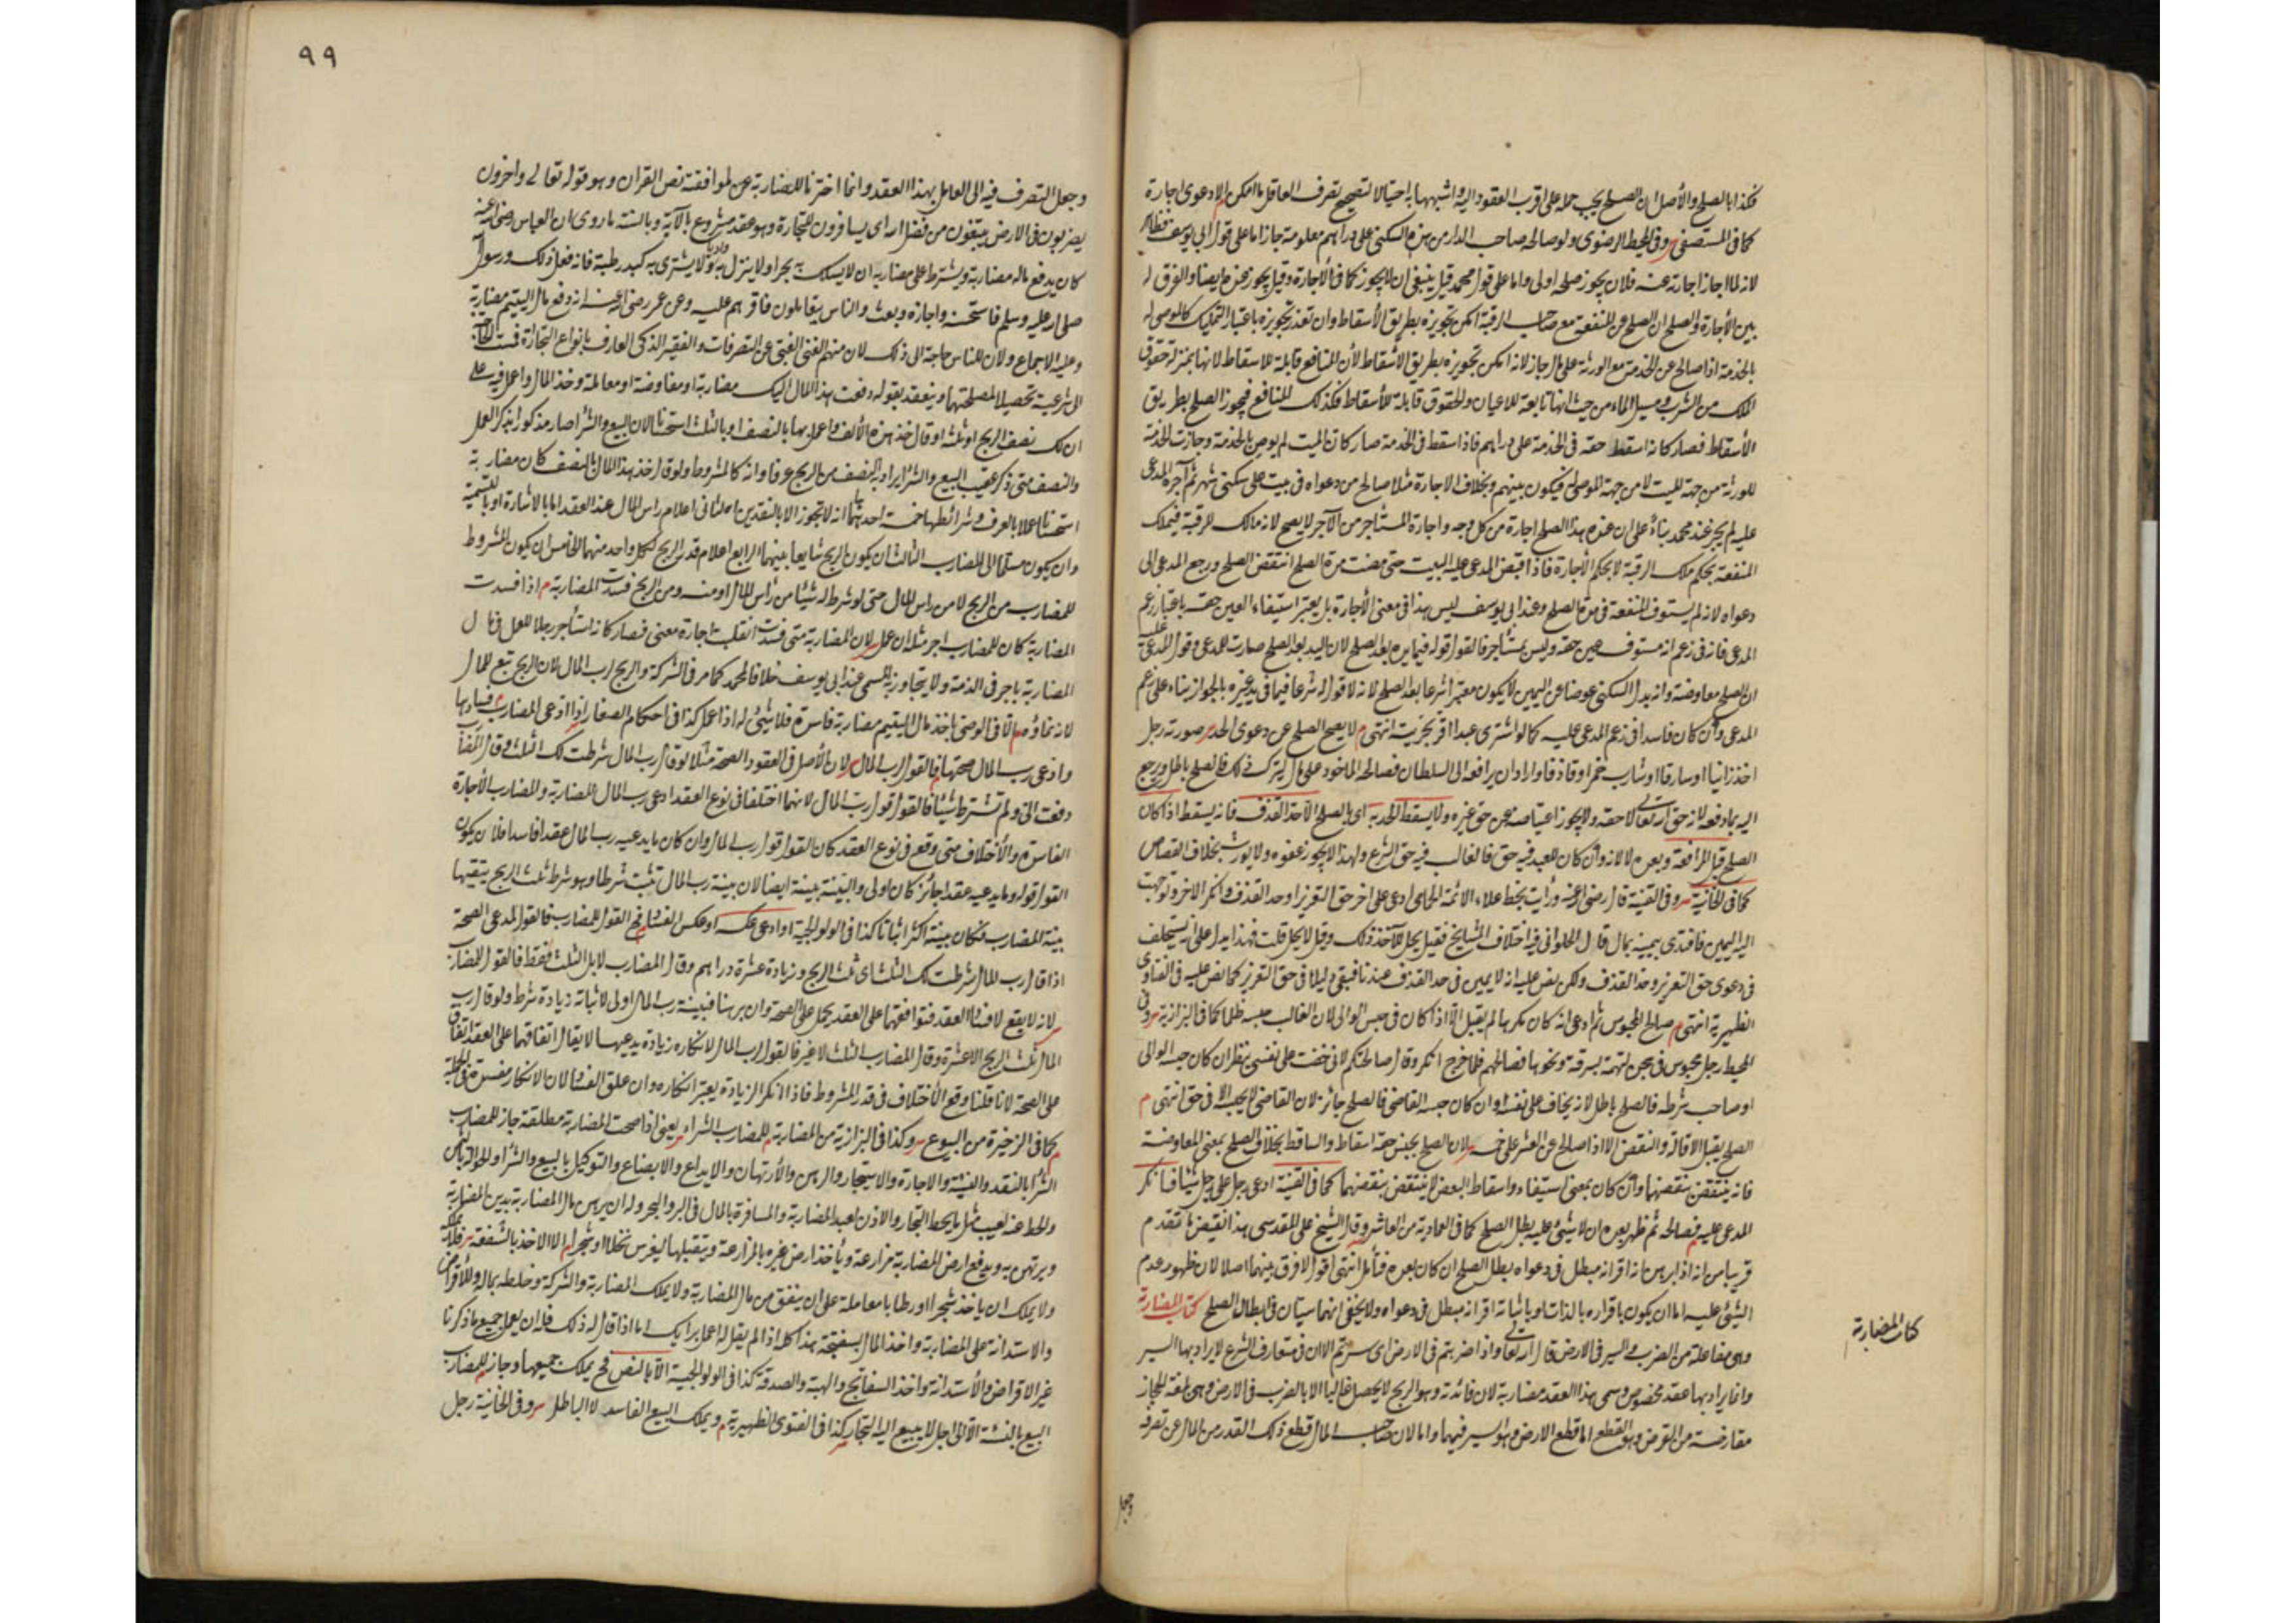 فكذا بالصلح والأصل ان الصلح يجب حمله على اقرب العقود اليه واشبهها به احتيالا لتصحيح تصرف العاقل ما امكن م الا دعوى اجارة
كما فى المستصفى س وفى المحيط الرضوى ولو صالحه صاحب الدار من هذه السكنى على دراهم معلومة جاز اما على قول ابى يوسف فظاهر
لانه لما اجاز اجارته عنه فلان يجوز صلحه اولى واما على قول محمد قيل ينبغى ان لا يجوز كما فى الأجارة وقيل يجوز عنه ايضا والفرق له
بين الأجارة والصلح ان الصلح عن المنفعة مع صاحب الرقبة امكن تجويزه بطريق الأسقاط وان تعذر تجويزه باعتبار التمليك كالموصى له
بالخدمة اذا صالح عن الخدمة مع الورثة على مال جاز لانه امكن تجويزه بطريق الأسقاط لأن المنافع قابلة للاسقاط لانها بمنزلة حقوق
الملك من الشرب ومسيل الماء من حيث انها تابعة للاعيان والحقوق قابلة للأسقاط فكذلك المنافع فيجوز الصلح بطريق
الأسقاط فصار كانه اسقط حقه فى الخدمة على دراهم فاذا سقط فى الخدمة صار كان الميت لم يوص بالخدمة وجازت الخدمة
للورثة من جهة الميت لا من جهة الموصى له فيكون بينهم وبخلاف الاجارة مثلا صالح من دعواه فى بيت على سكنى شهر ثم آجره المدعى
عليه لم يجز عند محمد بناءً على ان عنده هذا الصلح اجارة من كل وجه واجارة المستأجر من الآجر لا يصح لانه مالك للرقبة فيملك
المنفعة بحكم ملك الرقبة لا بحكم الأجارة فاذا قبض المدعى عليه البيت حتى مضت مدة الصلح انتقض الصلح ورجع المدعى الى
دعواه لانه لم يستوف المنفعة فى مدة الصلح وعند ابى يوسف ليس هذا فى معنى الأجارة بل يعتبر استيفاء العين حقه باعتبار زعم
المدعى فانه فى زعم انه مستوف عين حقه وليس بمستأجر فالقول قوله فيما يده بعد الصلح لان اليد بعد الصلح صارت للمدعى وقول المدعى عليه
ان الصلح معاوضة وانه بدل السكنى عوضا عن اليمين لا يكون معتبرا شرعا بعد الصلح لانه لا قول له شرعا فيما فى يد غيره بالجواز بناء على زعم
المدعى وان كان فاسدا فى زعم المدعى عليه كما لو اشترى عبدا اقر بحريته انتهى م لا يصح الصلح عن دعوى الحد س صورته رجل
اخذ زانيا او سارقا او شارب خمر او قاذفا واراد ان يرافعه الى السلطان فصالحه الماخوذ على مال ليترك ذلك فالصلح باطل ويرجع
اليه بما دفعه لانه حق الله تعالى لا حقه ولا يجوز اعتياضه عن حق غيره ولا يسقط الحد به اى بالصلح الا حد القذف فانه يسقط اذا كان
الصلح قبل المرافعة وبعده لا لانه وان كان للعبد فيه حق فالغالب فيه حق الشرع ولهذا لا يجوز عفوه ولا يورث بخلاف القصاص
كما فى الخانية س وفى القنية قال رضى الله عنه ورأيت بخط علاء الائمة الحمامى ادعى على اخر حق التعزير او حد القذف وانكر الاخر وتوجهت
اليه اليمين فافتدى يمينه بمال قال الحلوانى فيه اختلاف المشايخ فقيل يحل للآخذ ذلك وقيل لا يحل قلت فهذا يدل على انه يستحلف
فى دعوى حق التعزير وحد القذف ولكن نص عليه انه لا يمين فى حد القذف عندنا فبقى دليلا فى حق التعزير كما نص عليه فى الفتاوى
الظهيرية انتهى م صالح المحبوس ثم ادعى انه كان مكرها لم يقبل الا اذا كان فى حبس الوالى لان الغالب حبسه ظلما كما فى البزازية س وفى
المحيط رجل محبوس فى سجن بتهمة بسرقة ونحوها فصالحهم فلما خرج انكر وقال صالحتكم لانى خفت على نفسى ينظر ان كان حبسه الوالى
او صاحب شرطه فالصلح باطل لانه يخاف على نفسه وان كان حبسه القاضى فالصلح جائز لان القاضى لا يحبسه الا فى حق انتهى م
الصلح يقبل الاقالة والنقض الا اذا صالح عن العشر على خمسة س لان الصلح بجنس حقه اسقاط والساقط بخلاف الصلح بمعنى المعاوضة
فانه ينتقض بنقضهما وان كان بمعنى استيفاء واسقاط البعض لا ينتقض بنقضهما كما فى القنية ادعى رجل على رجل شيئا فانكر
المدعى عليه فصالحه ثم ظهر بعده ان لا شيئ عليه بطل الصلح كما فى العمادية من العاشر وقال الشيخ على المقدسى هذا نقيض ما تقدم
قريبا من انه اذا برهن انه اقر انه مبطل فى دعواه يبطل الصلح ان كان بعده فتأمل انتهى اقول لا فرق بينهما اصلا لان ظهور عدم
الشيئ عليه اما ان يكون باقراره بالذات او باثباته اقرانه مبطل فى دعواه ولا يخفى انهما سيان فى ابطال الصلح كتاب المضاربة
وهى مفاعلة من الضرب وهو السير فى الارض قال الله تعالى واذا ضربتم فى الارض اى سرتم الا ان فى متعارف الشرع لا يراد بها السير
وانما يراد بها عقد مخصوص وسمى هذا العقد مضاربة لان فائدته وهو الربح لا يحصل غالبا الا بالضرب فى الارض وهى بلغة الحجاز
مقارضة من القرض وهو القطع اما قطع الارض وهو السير فيها واما لان صاحب المال قطع ذلك القدر من المال عن تصرفه
كتاب المضاربة
وجعل
٩٩
وجعل التصرف فيه الى العامل بهذا العقد وانما اخترنا المضاربة عن لموافقته نص القران وهو قوله تعالى واخرون
يضربون فى الارض يبتغون من فضل الله اى يسافرون للتجارة وهو عقد مشروع بالآية وبالسنة ما روى ان العباس رضى الله عنه
كان يدفع ماله مضاربة ويشترط على مضاربه ان لا يسلك به بحرا ولا ينزل به واديا ولا يشترى به كبد رطبة فانه فعل ذلك ورسول الله
صلى الله عليه وسلم فاستحسنه واجازه وبعث والناس يتعاملون فاقرهم عليه وعن عمر رضى الله عنه انه دفع مال اليتيم مضاربة
وعليه الاجماع ولان للناس حاجة الى ذلك لان منهم الغنى الغبى عن التصرفات والفقير الذكى العارف بانواع التجارة فمست الحاجة
الى شرعيته تحصيلا لمصلحتهما وينعقد بقوله دفعت هذا المال اليك مضاربة او مفاوضة او معاملة وخذ المال واعمل فيه على
ان لك نصف الربح او ثلثه او قال خذ هذه الألف واعمل بها بالنصف او بالثلث استحسانا لان البيع والشرا صار مذكورا بذكر العمل
والنصف متى ذكر عقيب البيع والشرا يراد به النصف من الربح عرفا وانه كالمشروط ولو قال خذ هذا المال بالنصف كان مضاربة
استحسانا عملا بالعرف وشرائطها خمسة احدها انها لا تجوز الا بالنقدين الثانى اعلام راس المال عند العقد اما بالاشارة او بالتسمية
وان يكون مسلما الى المضارب الثالث ان يكون الربح شايعا بينهما الرابع اعلام قدر الربح لكل واحد منهما الخامس ان يكون المشروط
للمضارب من الربح لا من راس المال حتى لو شرط له شيئا من رأس المال او منه ومن الربح فسدت المضاربة م اذا فسدت
المضاربة كان للمضارب اجر مثله ان عمل س لان المضاربة متى فسدت انقلبت اجارة معنى فصار كانه استأجر رجلا للعمل فى مال
المضاربة باجر فى الذمة ولا يتجاوز به المسمى عند ابى يوسف خلافا لمحمد كما مر فى الشركة والربح لرب المال لان الربح تبع للمال
لانه نماؤه م الا فى الوصى ياخذ مال اليتيم مضاربة فاسدة فلا شيئ له اذا عمل كذا فى احكام الصغار اذا ادعى المضارب فسادها
وادعى رب المال صحتها فالقول لرب المال س لان الأصل فى العقود الصحة مثلا لو قال رب المال شرطت لك الثلث وقال المضارب
دفعت الى ولم تشترط شيئا فالقول قول رب المال لانهما اختلفا فى نوع العقد ادعى رب المال المضاربة والمضارب الأجارة
الفاسدة والأختلاف متى وقع فى نوع العقد كان القول قول رب المال وان كان ما يدعيه رب المال عقدا فاسدا فلان يكون
القول قوله وما يدعيه عقد جائز كان اولى والبينة بينة ايضا لان بينة رب المال تثبت شرطا وهو شرط ثلث الربح يتقيها
بينة المضارب فكان بينته اكثر اثباتا كذا فى الولوالجية او ادعى عكسه او عكس القول فالقول للمضارب فالقول لمدعى الصحة
اذا قال رب المال شرطت لك الثلث اى ثلث الربح وزيادة عشرة دراهم وقال المضارب لا بل الثلث فقط فالقول للمضارب
س لانه لا يقع لافساد العقد فتوافقهما على العقد يحمل على الصحة وان برهنا فبينة رب المال اولى لاثباته زيادة شرط ولو قال رب
المال ثلث الربح الا عشرة وقال المضارب الثلث لا غير فالقول لرب المال لانكاره زيادة يدعيها لا يقال اتفاقهما على العقد اتفاق
على الصحة لانا قلنا وقع الأختلاف فى قدر المشروط فاذا انكر الزيادة يعتبر انكاره وان علق الفساد لان الانكار مفسد فى الجملة
م كما فى الذخيرة من البيوع س وكذا فى البزازية من المضاربة م للمضارب الشراء س يعنى اذا صحت المضاربة مطلقة جاز للمضارب
الشرا بالنقد والنسيئة والاجارة والاستيجار والرهن والأرتهان والايداع والابضاع والتوكيل بالبيع والشرا والحوالة بالثمن
والحط عنه لعيب مثل ما يحط التجار والاذن لعبد المضاربة والمسافرة بالمال فى البر والبحر وله ان يرهن مال المضاربة بدين المضاربة
ويرتهن به ويدفع ارض المضاربة مزارعة ويأخذ ارض غيره بالمزارعة ويتقبلها ليغرس نخلا او شجرا م لا الاخذ بالشفعة س فلا يملكه
ولا يملك ان ياخذ شجرا او رطابا معاملة على ان ينفق من مال المضاربة ولا يملك المضاربة والشركة وخلطه بماله والاقراض
والاستدانة على المضاربة واخذ المال بسفتجة هذا كله اذا لم يقل له اعمل برأيك اما اذا قال له ذلك فله ان يعمل جميع ما ذكرنا
غير الاقراض والأستدانة واخذ السفاتج والهبة والصدقة كذا فى الولوالجية الا بالنص فح يملك جميعها وجاز للمضارب
البيع بالنسيئة الا الى اجل لا يبيع اليه التجار كذا فى الفتوى الظهيرية م ويملك البيع الفاسد لا الباطل س وفى الخانية رجل